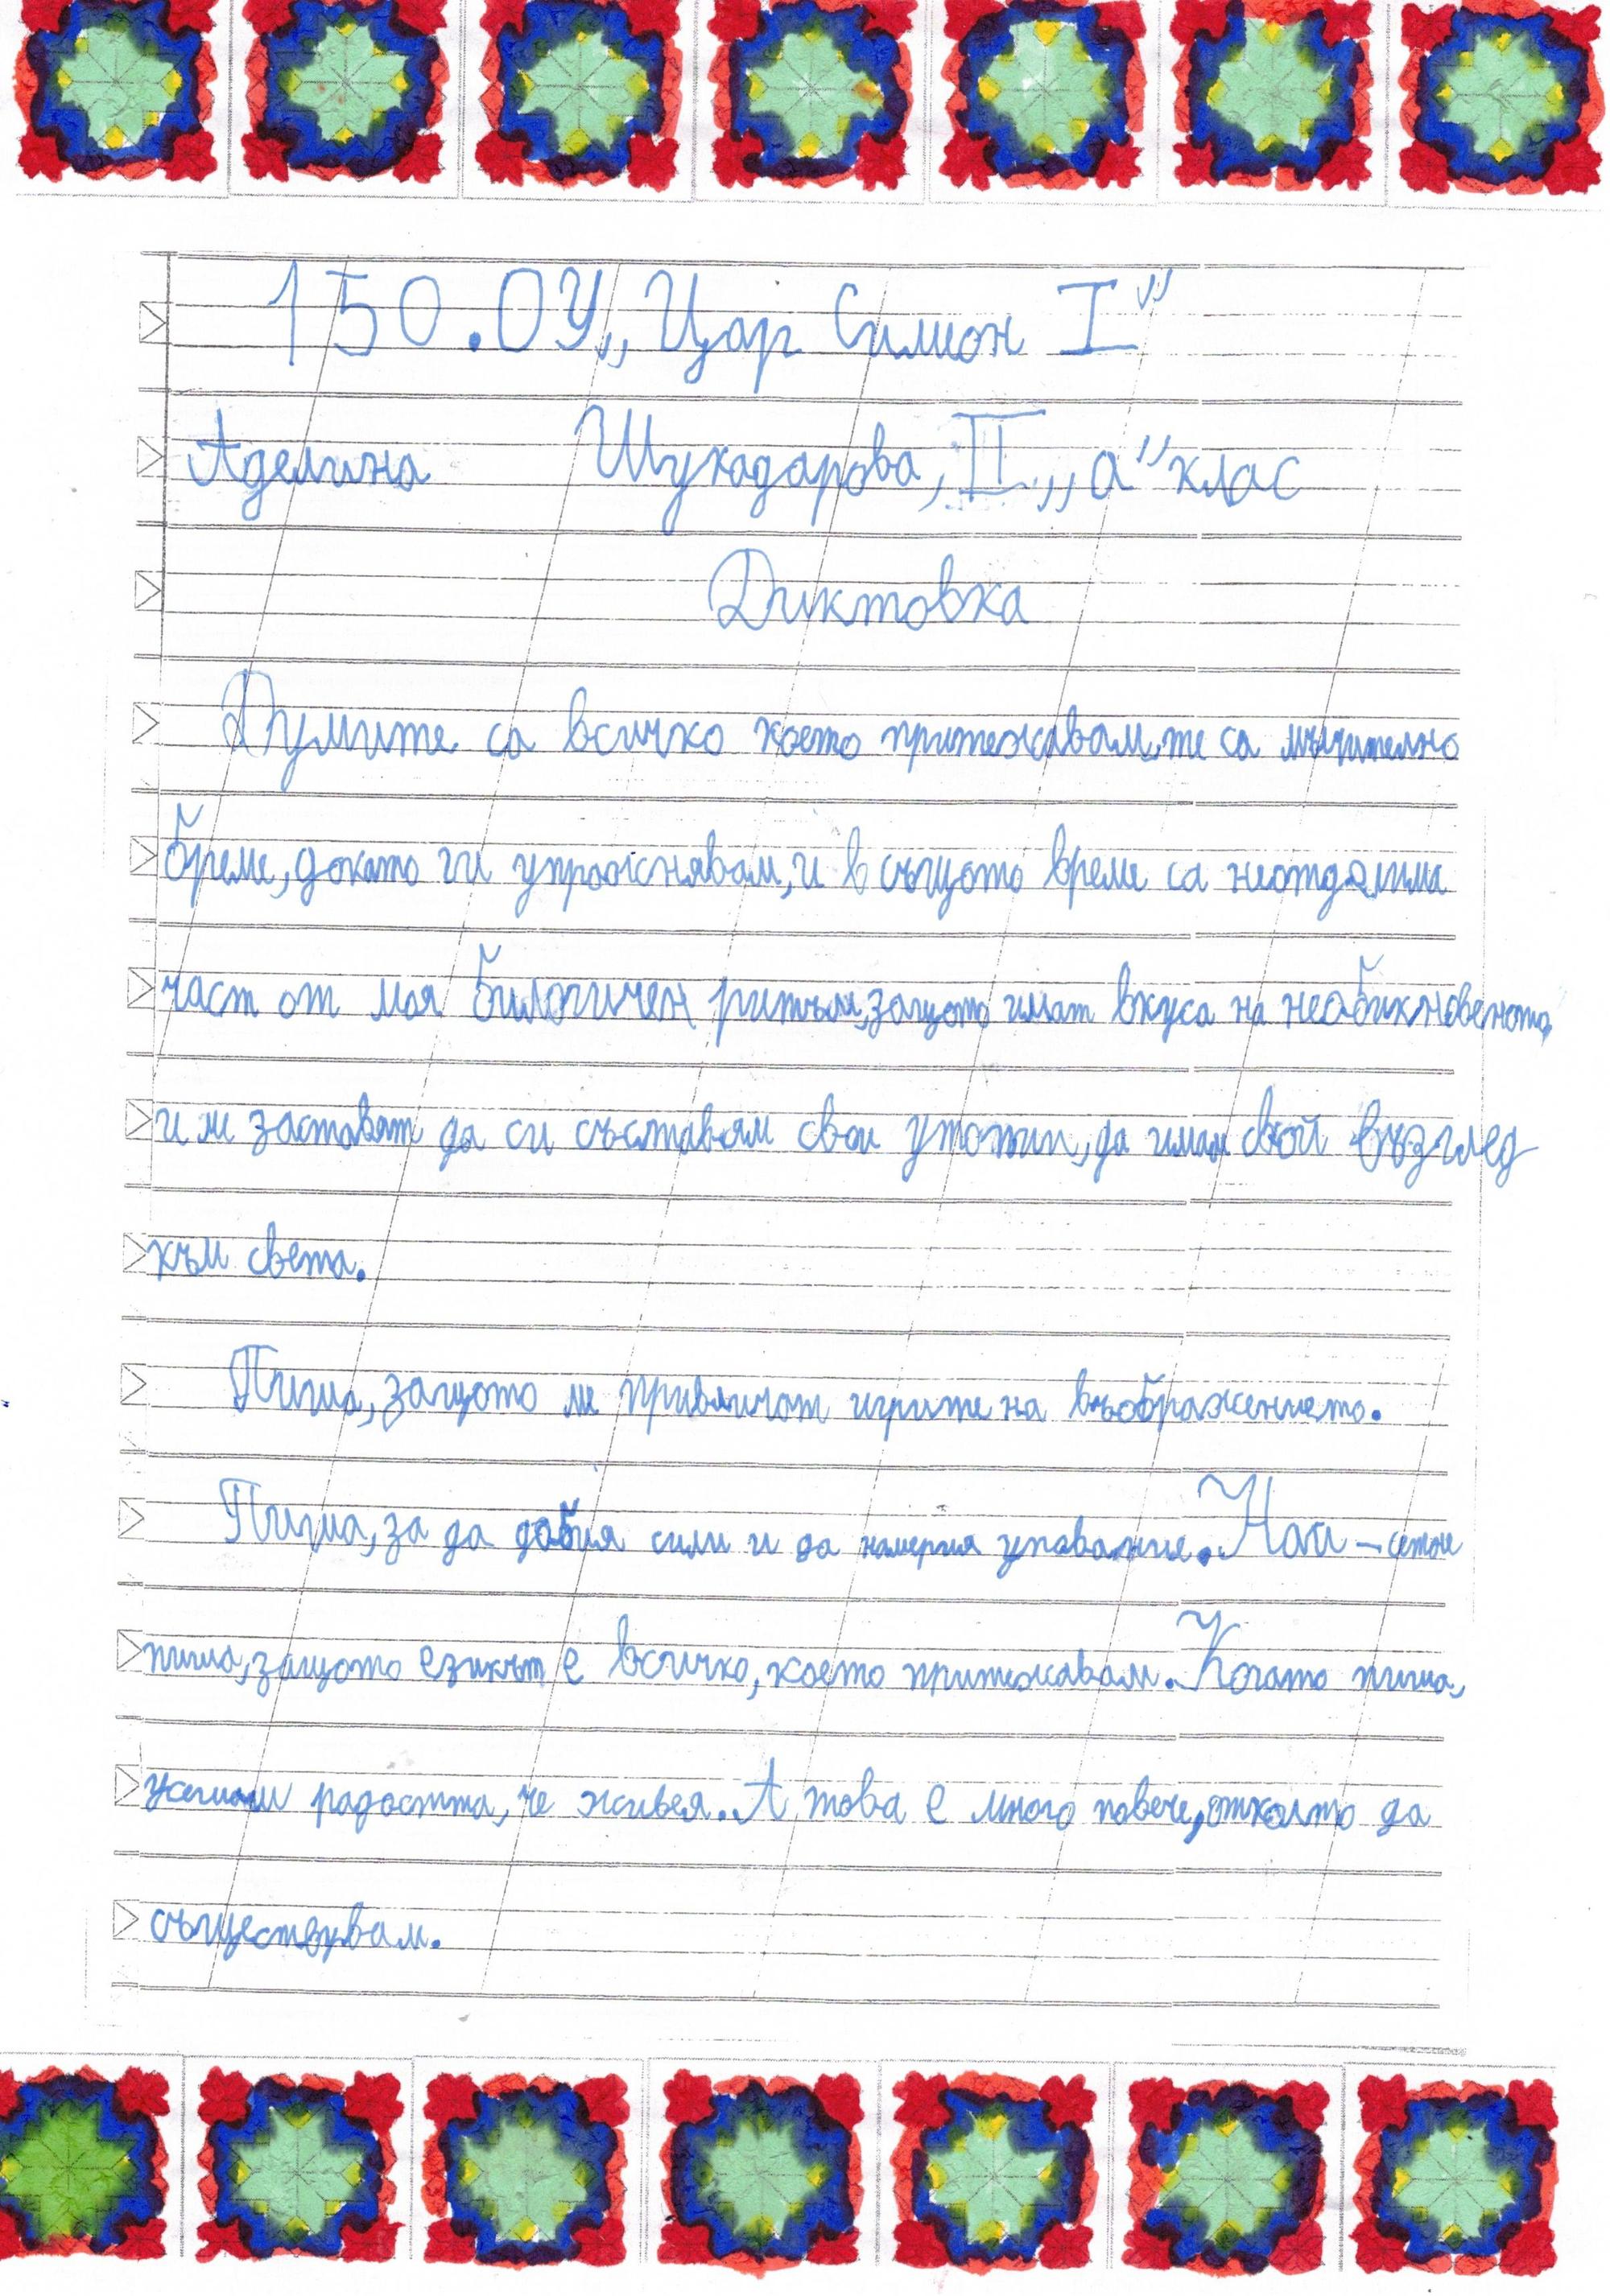 150. ОУ „Цар Симеон I”
Аделина Шукадарова, II „а” клас
Диктовка
Думите са всичко което притежавам, те са мъчително
бреме, докато ги упражнявам, и в същото време са неотделима
част от моя билогичен ритъм, защото имат вкуса на необикновеното,
и ме заставят да си съставям свои утопии, да имам свой възглед
към света.
Пиша, защото ме привличат игрите на въображението.
Пиша, за да добия сили и да намеря упование. Най-сетне
пиша, защото езикът е всичко, което притежавам. Когато пиша,
усещам радостта, че живея. А това е много повече, отколто да
съществувам.